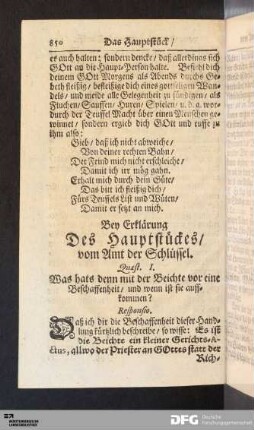 850 Das Hauptstück/
er auch halten; sondern dencke/ daß allerdings sich
GOtt an die Haupt-Person halte. Befihl dich
deinem GOtt Morgens als Abends durchs Ge-
beth fleißig/ befleißige dich eines gottseligen Wan-
dels/ und meide alle Gelegenheit zu sündigen/ als
Fluchen/ Sauffen/ Huren/ Spielen/ u. d. a. wor-
durch der Teuffel Macht über einen Menschen ge-
winnet/ sondern ergieb dich GOtt und ruffe zu
ihm also:
Gieb/ daß ich nicht abweiche/
Von deiner rechten Bahn/
Der Feind mich nicht erschleiche/
Damit ich irr mög gahn.
Erhalt mich durch dein Güte/
Das bitt ich fleißig dich/
Fürs Teuffels List und Wüten/
Damit er setzt an mich.
Bey Erklärung
Des Hauptstückes/
vom Amt der Schlüssel.
Quæst. I.
Was hats denn mit der Beichte vor eine
Beschaffenheit/ und wenn ist sie auff-
kommen?
Responsio.
Daß ich dir die Beschaffenheit dieser Hand-
lung kürtzlich beschreibe/ so wisse: Es ist
die Beichte ein kleiner Gerichts-A-
ctus, allwo der Priester an GOttes statt der
Rich-
DFG Deutsche
Forschungsgemeinschaft